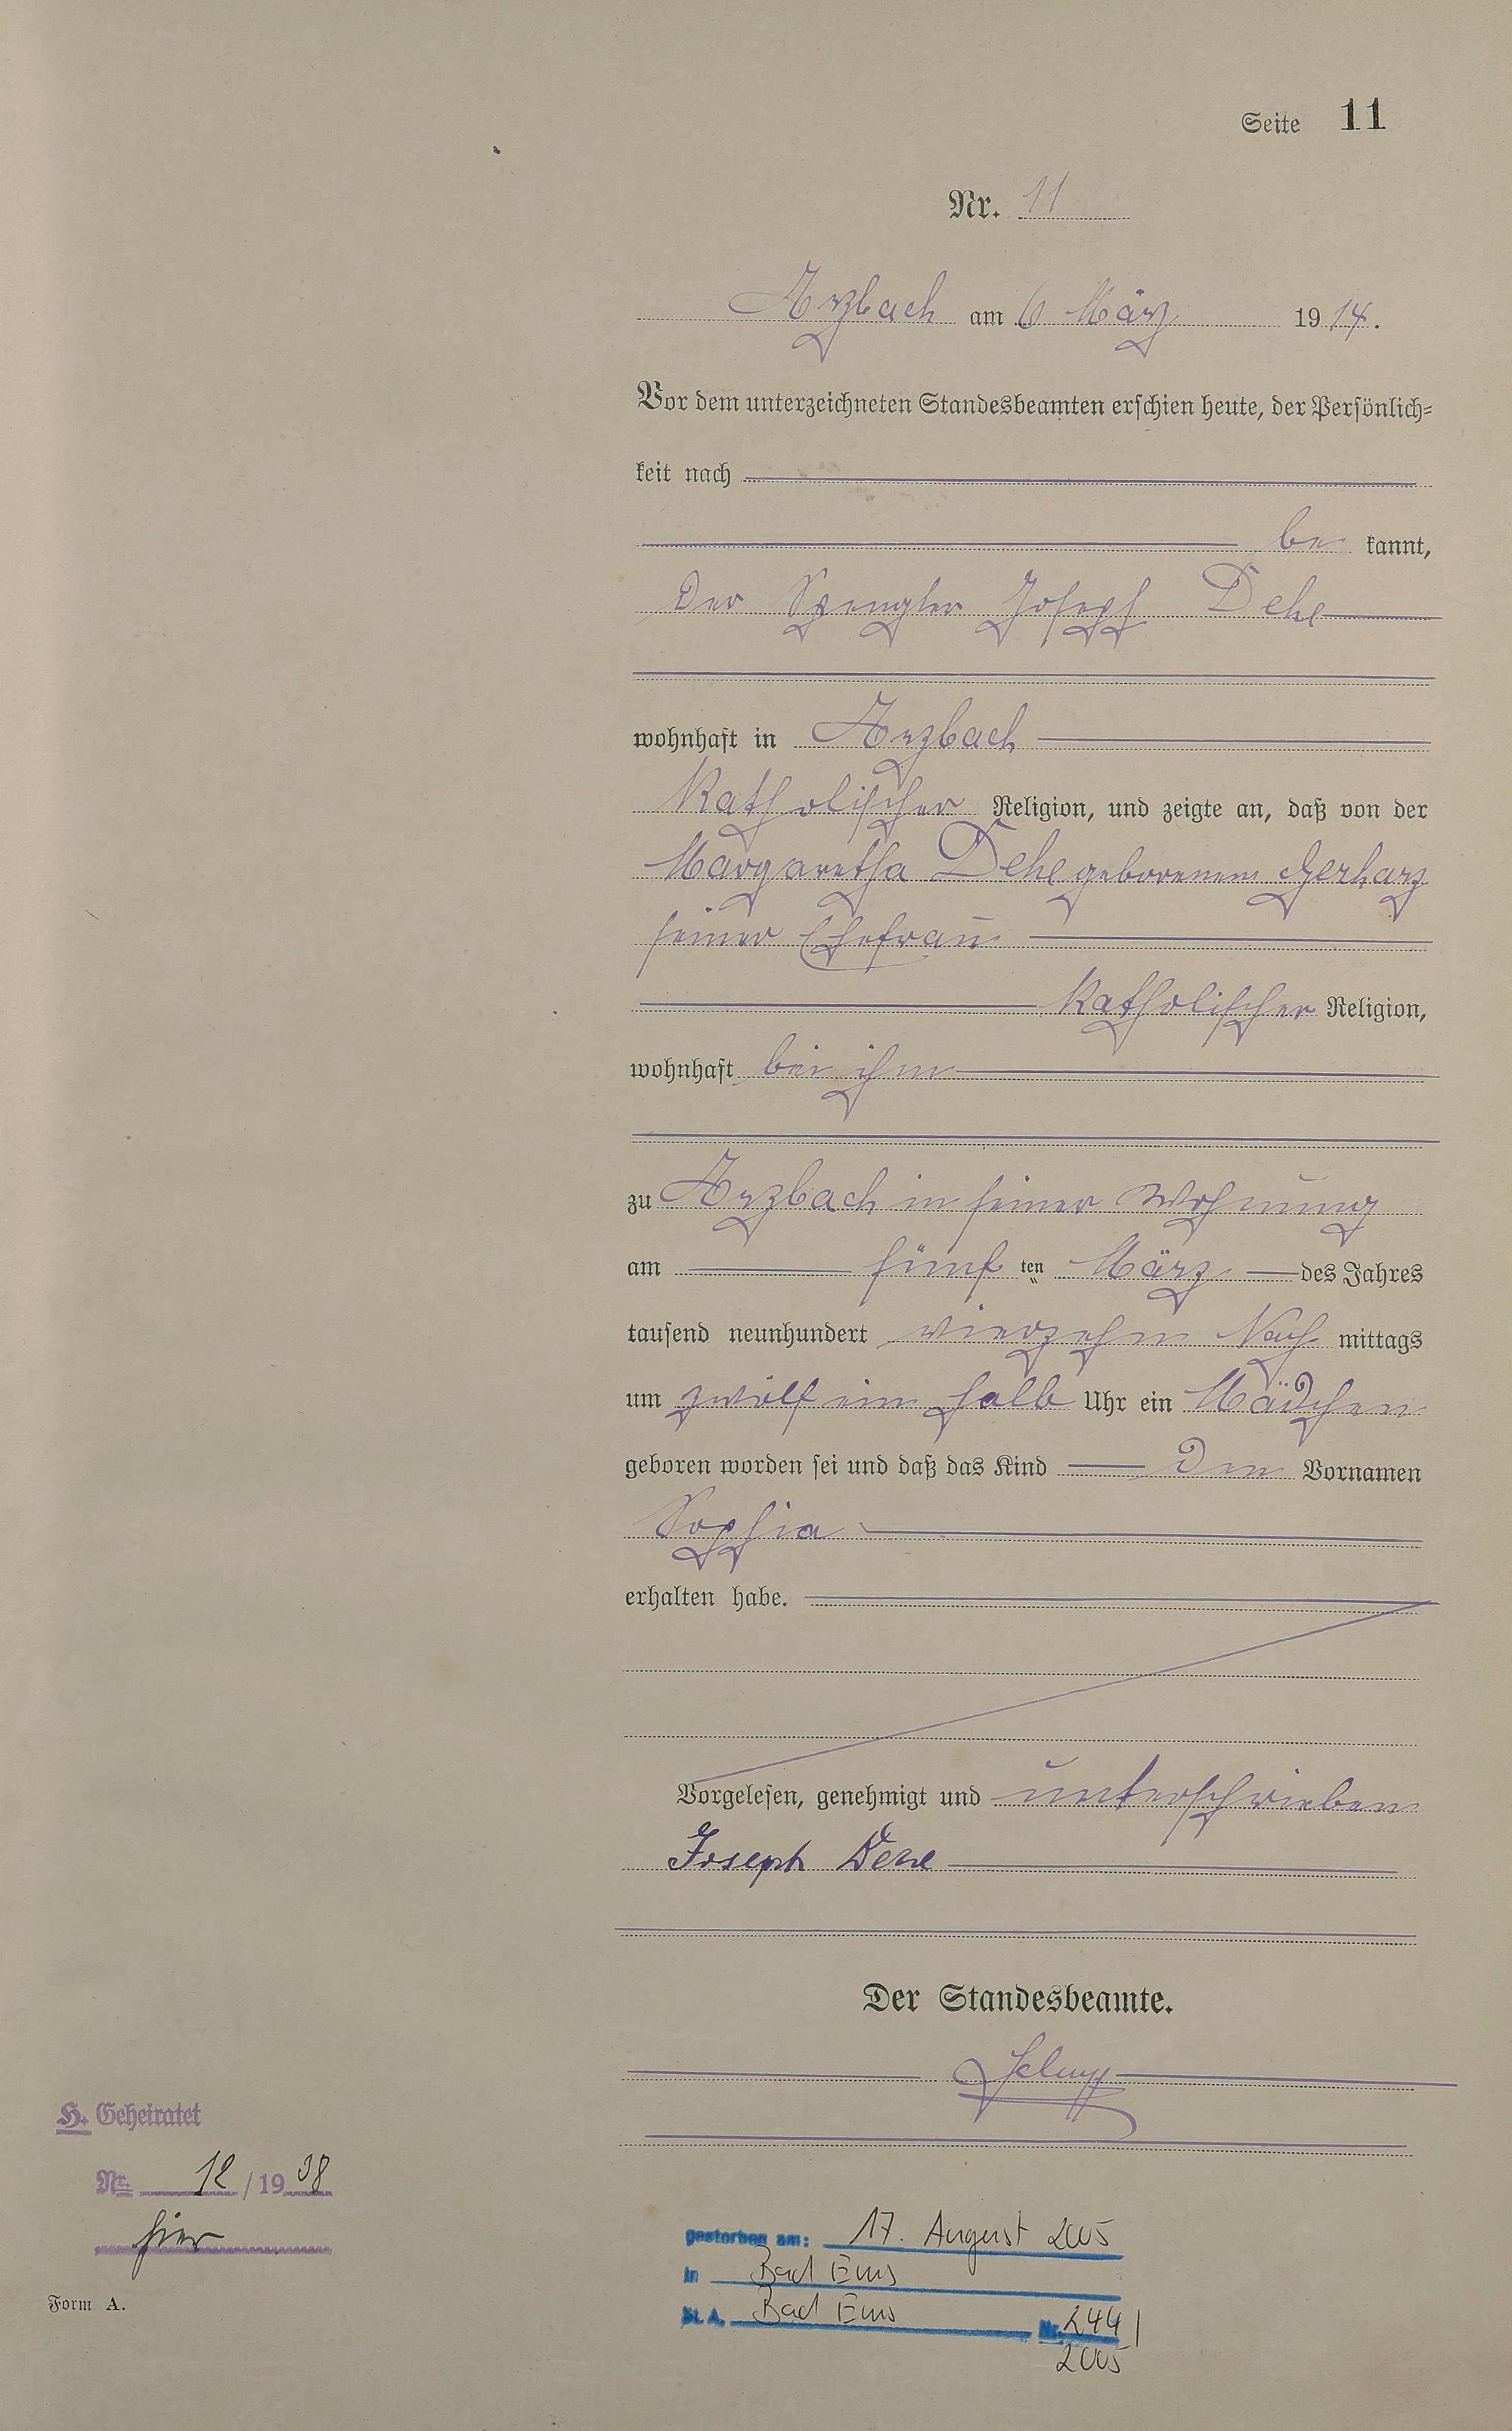 Seite 11
Nr. 11
Arzbach am 6 März 1914.
Vor dem unterzeichneten Standesbeamten erschien heute, der Persönlich=
keit nach
be kannt,
der Spengler Joseph Dehe
wohnhaft in Arzbach
katholischer Religion, und zeigte an, daß von der
Margaretha Dehe geborenen Gerharz
seiner Ehefrau
katholischer Religion,
wohnhaft bei ihm
zu Arzbach in seiner Wohnung
am fünf ten März des Jahres
tausend neunhundert vierzehn Nach mittags
um zwölf ein halb Uhr ein Mädchen
geboren worden sei und daß das Kind den Vornamen
Sophia
erhalten habe.
Vorgelesen, genehmigt und unterschrieben
Joseph Dehe
Der Standesbeamte.
H. Geheiratet
Nr. 12/1938
hier
gestorben am: 17. August 2005
in Bad Ems
St. A. Bad Ems Nr. 244/
2005
Form A.